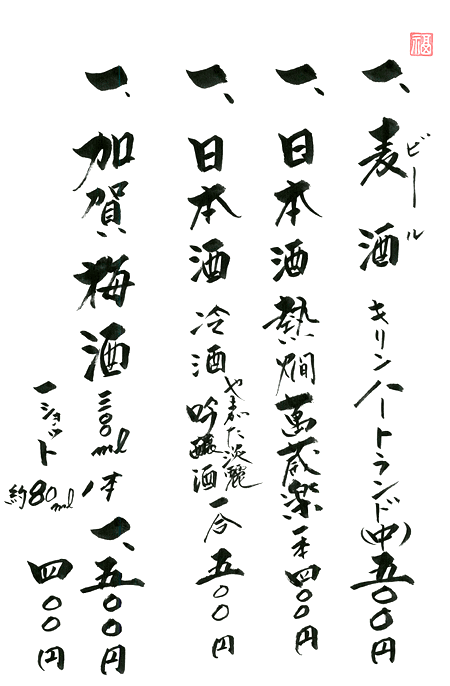 福
一、麦酒 キリンハートランド(中)五〇〇円
ビール
一、日本酒 熱燗 萬歳楽 一本 四〇〇円
一、日本酒 冷酒 吟醸酒 一合 五〇〇円
淡麗
一、加賀梅酒 三〇〇ml 1本 一、五〇〇円
一ショット 約80ml 四〇〇円